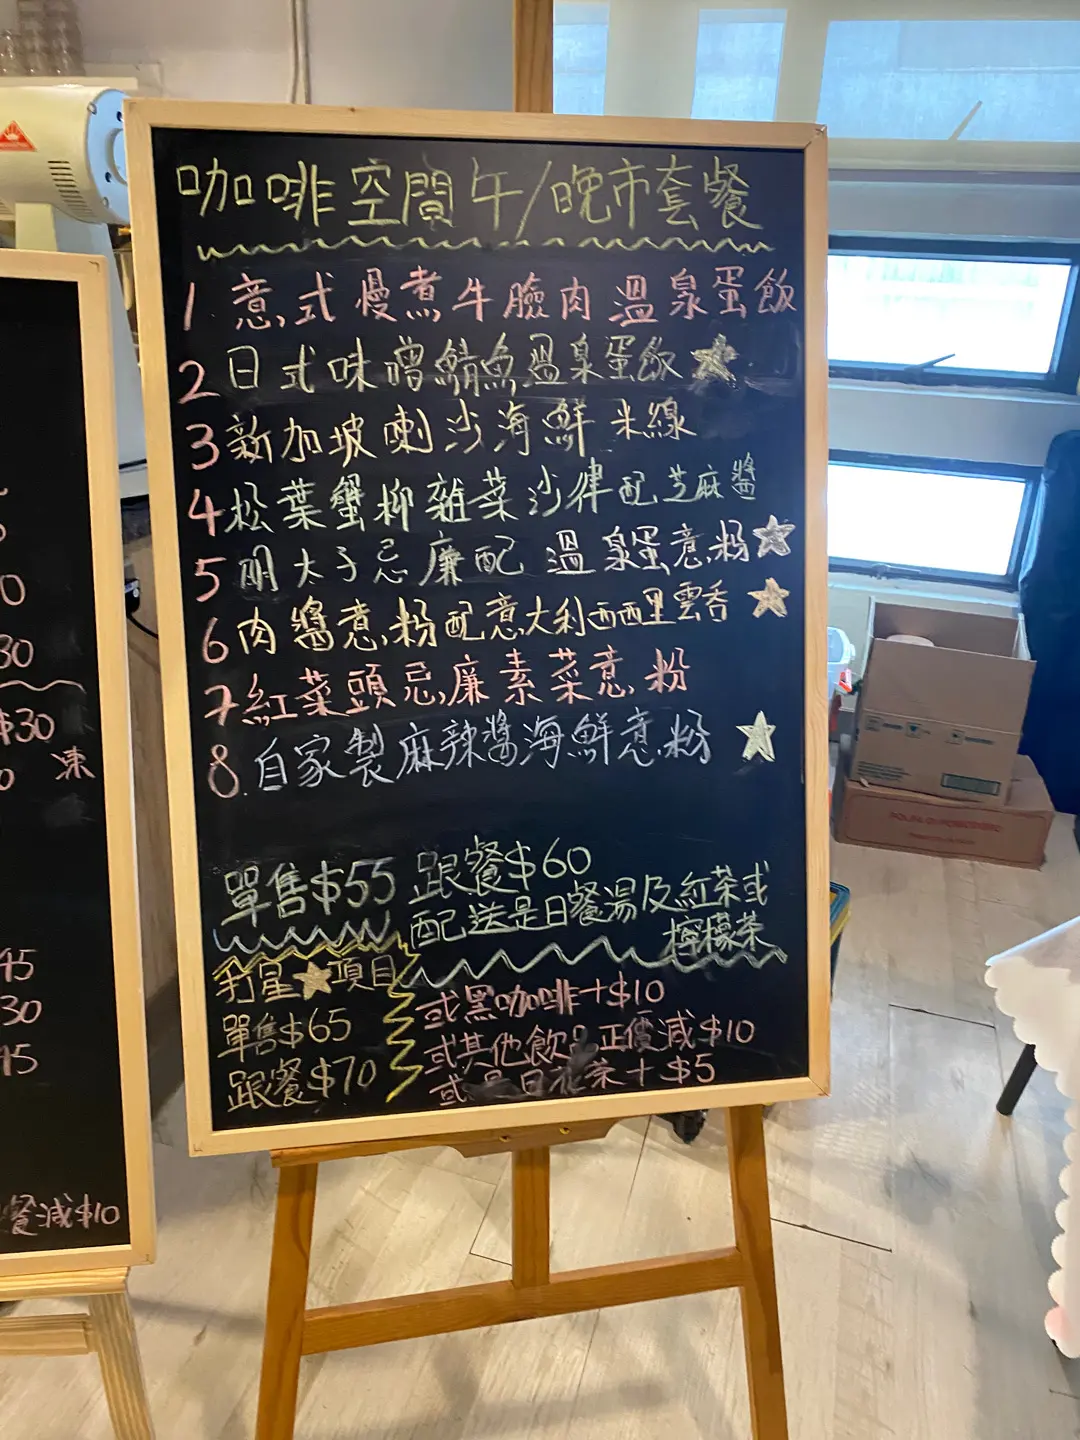 咖啡空間午/晚市套餐
1 意式慢煮牛臉肉溫泉蛋飯
2 日式味噌鯖魚溫泉蛋飯
3 新加坡喇沙海鮮米線
4 松葉蟹柳雜菜沙律配芝麻醬
5 明太子忌廉配溫泉蛋意粉
6 肉醬意粉配意大利西西里雲吞
7 紅菜頭忌廉素菜意粉
8. 自家製麻辣醬海鮮意粉
單售$55 跟餐$60
配送是日餐湯及紅茶或
檸檬茶
打星項目
單售$65
跟餐$70
或黑咖啡+$10
或其他飲品正價減$10
或是日花茶+$5
30
$30
凍
45
30
45
餐減$10